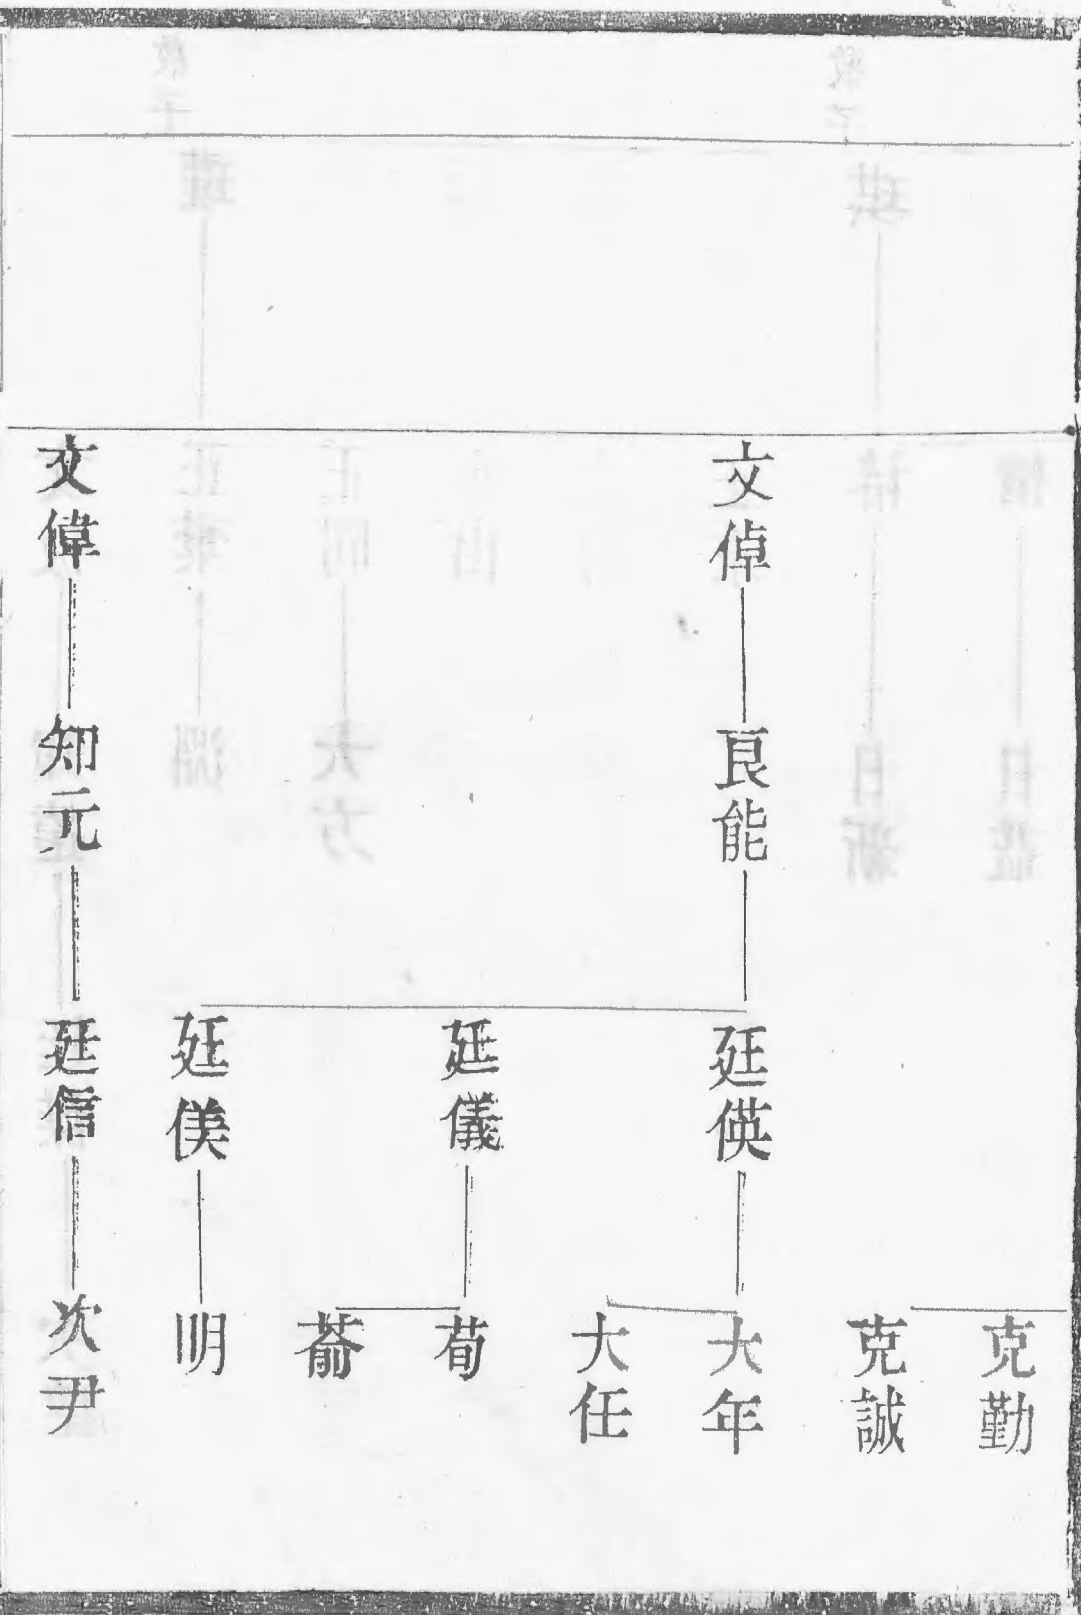 克勤
克誠
文倬
良能
廷偀
大年
大任
廷儀
荀
廷僙
明
文偉
知元
廷信
次尹